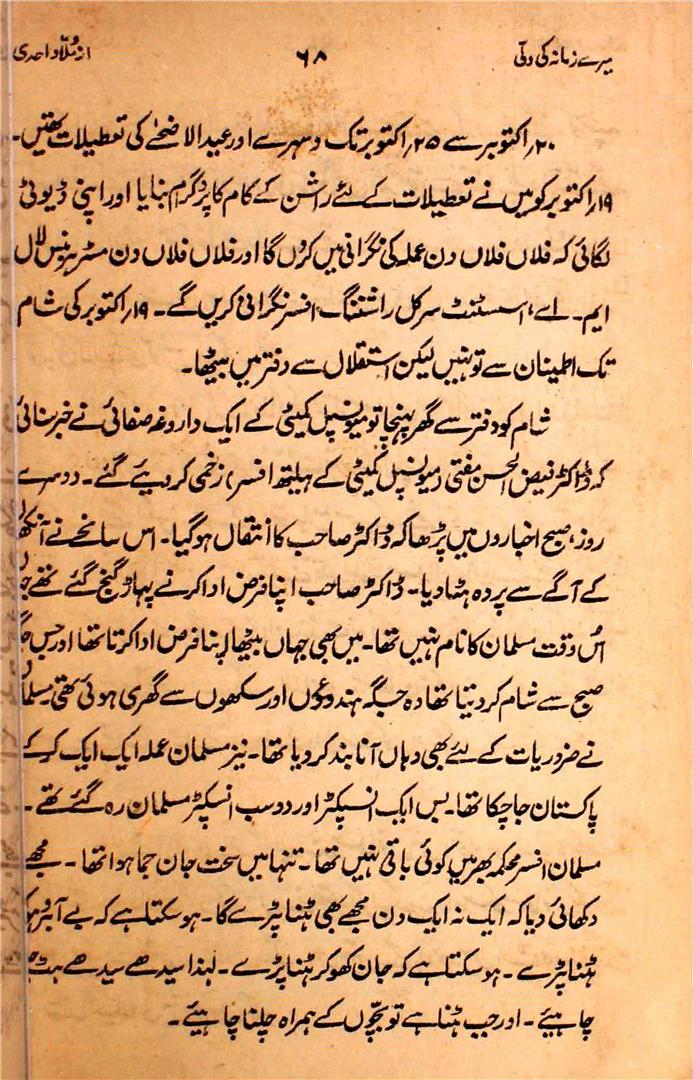 میرے زمانہ کی دلّی ۶۸ از مُلّا واحدی
۲۰؍اکتوبر سے ۲۵؍اکتوبر تک دسہرے اور عید الاضحےٰ کی تعطیلات تھیں۔
۱۹؍اکتوبر کو میں نے تعطیلات کے لئے راشن کے کام کا پروگرام بنایا اور اپنی ڈیوٹی
لگائی کہ فلاں فلاں دن عملہ کی نگرانی میں کروں گا اور فلاں فلاں دن مسٹر ہنس لال
ایم۔ اے، اسسٹنٹ سرکل راشننگ افسر نگرانی کریں گے۔ ۱۹؍اکتوبر کی شام
تک اطمینان سے تو نہیں لیکن استقلال سے دفتر میں بیٹھا۔
شام کو دفتر سے گھر پہنچا تو میونسپل کمیٹی کے ایک داروغہ صفائی نے خبر سنائی
کہ ڈاکٹر فیض الحسن مفتی (میونسپل کمیٹی کے ہیلتھ افسر) زخمی کر دیئے گئے۔ دوسرے
روز، صبح اخباروں میں پڑھا کہ ڈاکٹر صاحب کا انتقال ہوگیا۔ اس سانحے نے آنکھ
کے آگے سے پردہ ہٹا دیا۔ ڈاکٹر صاحب اپنا فرض ادا کرنے پہاڑ گنج گئے تھے
اُس وقت مسلمان کا نام نہیں تھا۔ میں بھی جہاں بیٹھا اپنا فرض ادا کرتا تھا اور جس
صبح سے شام کر دیتا تھا وہ جگہ ہندوؤں اور سکھوں سے گھری ہوئی تھی۔
نے ضروریات کے لئے بھی وہاں آنا بند کر دیا تھا۔ نیز مسلمان عملہ ایک ایک کر کے
پاکستان جا چکا تھا۔ بس ایک انسپکٹر اور دو سب انسپکٹر مسلمان رہ گئے تھے۔
مسلمان افسر محکمہ بھر میں کوئی باقی نہیں تھا۔ تنہا میں سخت جان جما ہوا تھا۔ مجھے
دکھائی دیا کہ ایک نہ ایک دن مجھے بھی ہٹنا پڑے گا۔ ہو سکتا ہے کہ بے آبرو
ہٹنا پڑے۔ ہو سکتا ہے کہ جان کھو کر ہٹنا پڑے۔ لہٰذا سیدھے سیدھے ہٹ
چاہیئے۔ اور جب ہٹنا ہے تو بچّوں کے ہمراہ چلنا چاہیئے۔